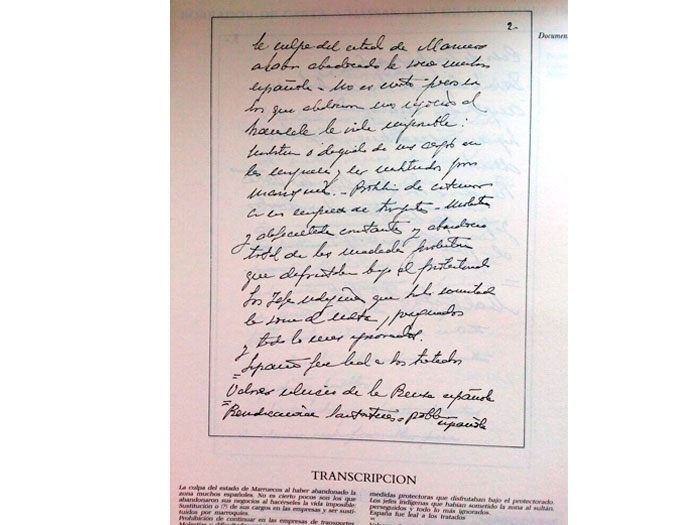 2-
Documen
la culpa del estado de Marruecos
al haber abandonado la zona muchos
españoles - No es cierto pocos son
los que abandonaron sus negocios al
hacersele la vida imposible:
o de sus cargos en
las empresas y ser sustituidos por
marroquíes. - Prohibición de continuar
en las empresas de transportes - Molestias
y constantes y abandono
total de las medidas protectoras
que disfrutaban bajo el protectorado
Los Jefes indigenas que habian sometido
la zona al sultan, perseguidos
y todo lo mas ignorados.
España fue leal a los tratados
Valores de la Prensa española
española
TRANSCRIPCION
La culpa del estado de Marruecos al haber abandonado la
zona muchos españoles. No es cierto pocos son los que
abandonaron sus negocios al hacérseles la vida imposible
Sustitución o (?) de sus cargos en las empresas y ser susti-
tuidos por marroquíes.
Prohibición de continuar en las empresas de transportes
medidas protectoras que disfrutaban bajo el protectorado.
Los jefes indígenas que habían sometido la zona al sultán,
perseguidos y todo lo más ignorados.
España fue leal a los tratados